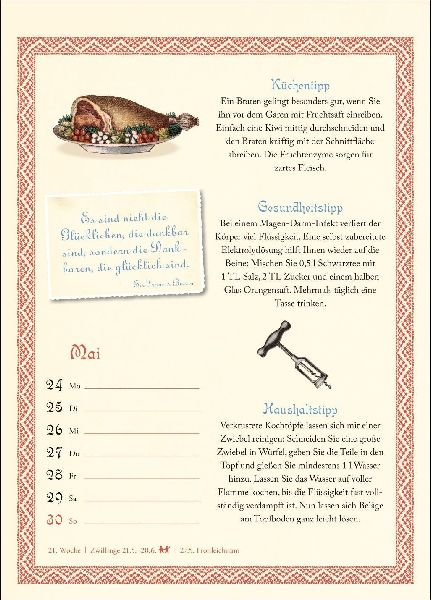 Küchentipp
Ein Braten gelingt besonders gut, wenn Sie
ihn vor dem Garen mit Fruchtsaft einreiben.
Einfach eine Kiwi mittig durchschneiden und
den Braten kräftig mit der Schnittfläche
abreiben. Die Fruchtenzyme sorgen für
zartes Fleisch.
Es sind nicht die
Glücklichen, die dankbar
sind, sondern die Dank-
baren, die glücklich sind.
Sir Francis Bacon
Gesundheitstipp
Bei einem Magen-Darm-Infekt verliert der
Körper viel Flüssigkeit. Eine selbst zubereitete
Elektrolytlösung hilft Ihnen wieder auf die
Beine: Mischen Sie 0,5 l Schwarztee mit
1 TL Salz, 2 TL Zucker und einem halben
Glas Orangensaft. Mehrmals täglich eine
Tasse trinken.
Mai
24 Mo
25 Di
26 Mi
27 Do
28 Fr
29 Sa
30 So
Haushaltstipp
Verkrustete Kochtöpfe lassen sich mit einer
Zwiebel reinigen: Schneiden Sie eine große
Zwiebel in Würfel, geben Sie die Teile in den
Topf und gießen Sie mindestens 1 l Wasser
hinzu. Lassen Sie das Wasser auf voller
Flamme kochen, bis die Flüssigkeit fast voll-
ständig verdampft ist. Nun lassen sich Beläge
am Topfboden ganz leicht lösen.
21. Woche | Zwillinge 21.5.-20.6. | 27.5. Fronleichnam